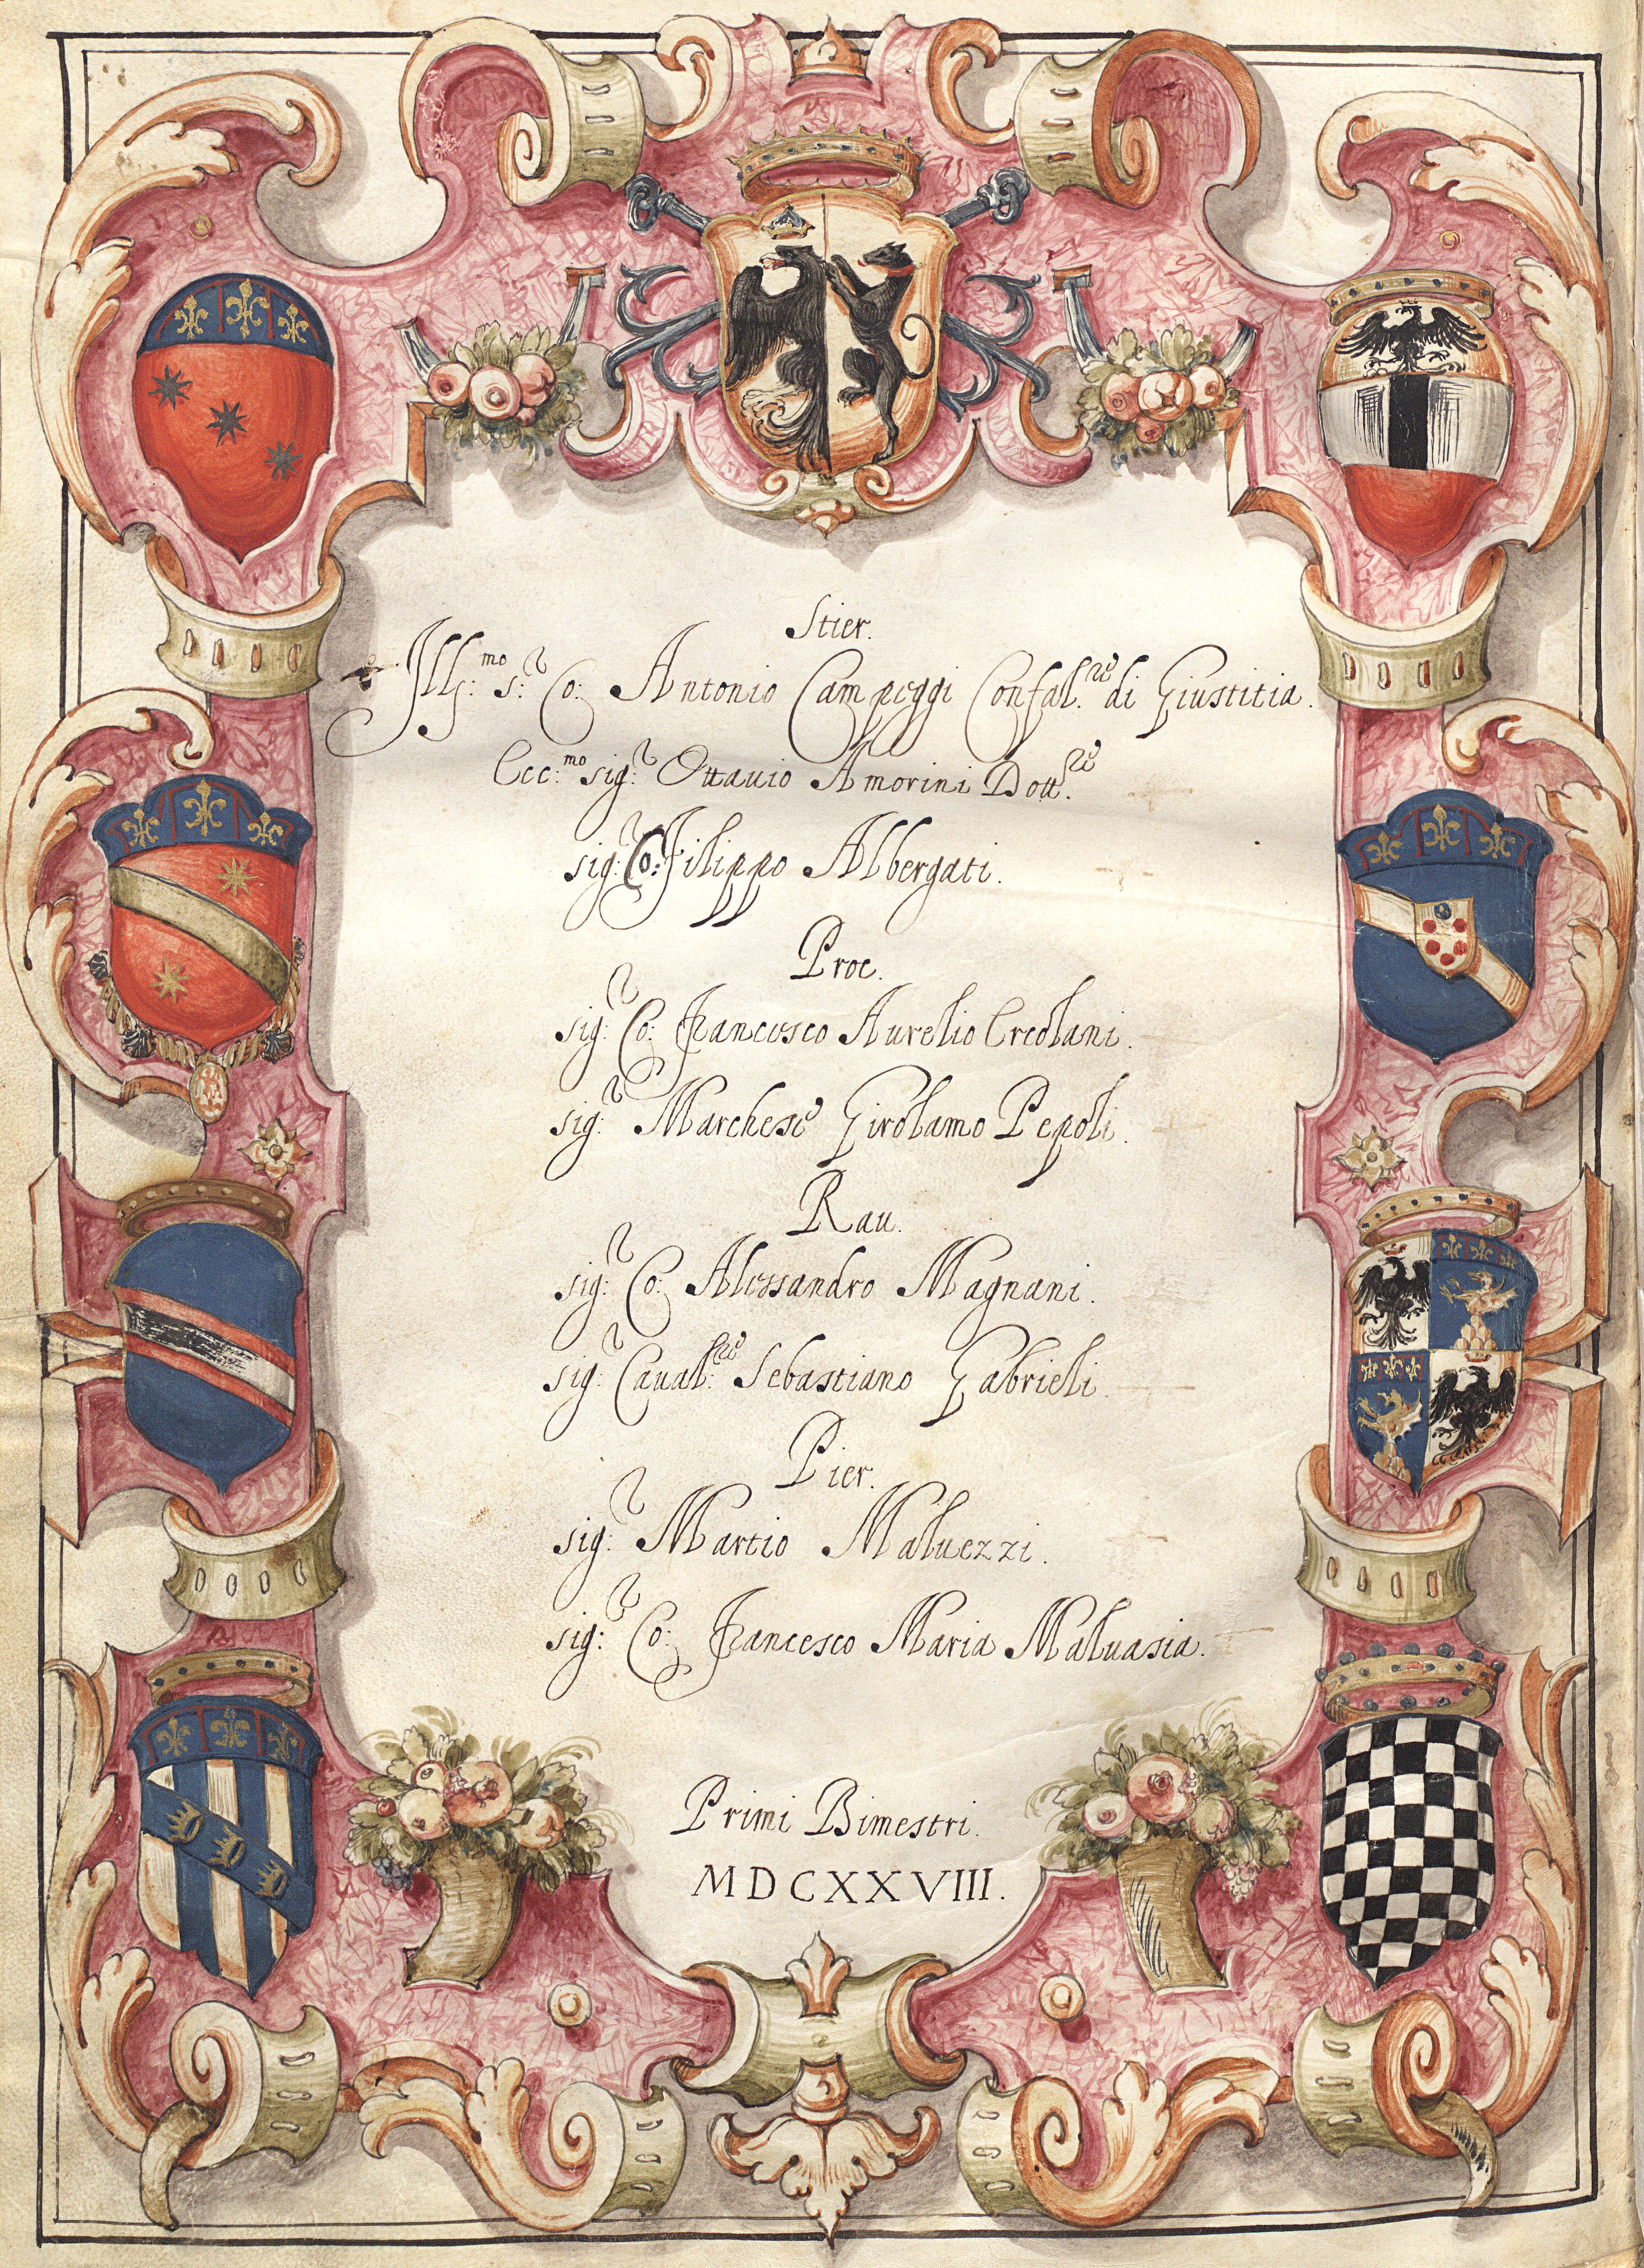 Stier.
Ill:mo s:r Co: Antonio Campeggi Confal:re di Giustitia.
Ecc:mo sig:r Ottauio Amorini Dott:re
sig:r Co: Filippo Albergati.
Proc.
sig:r Co: Francesco Aurelio Ercolani.
sig:r Marchese Girolamo Pepoli.
Rau.
sig:r Co: Alessandro Magnani.
sig:r Caual:re Sebastiano Gabrieli.
Pier.
sig:r Martio Maluezzi.
sig:r Co: Francesco Maria Maluasia.
Primi Bimestri.
MDCXXVIII.